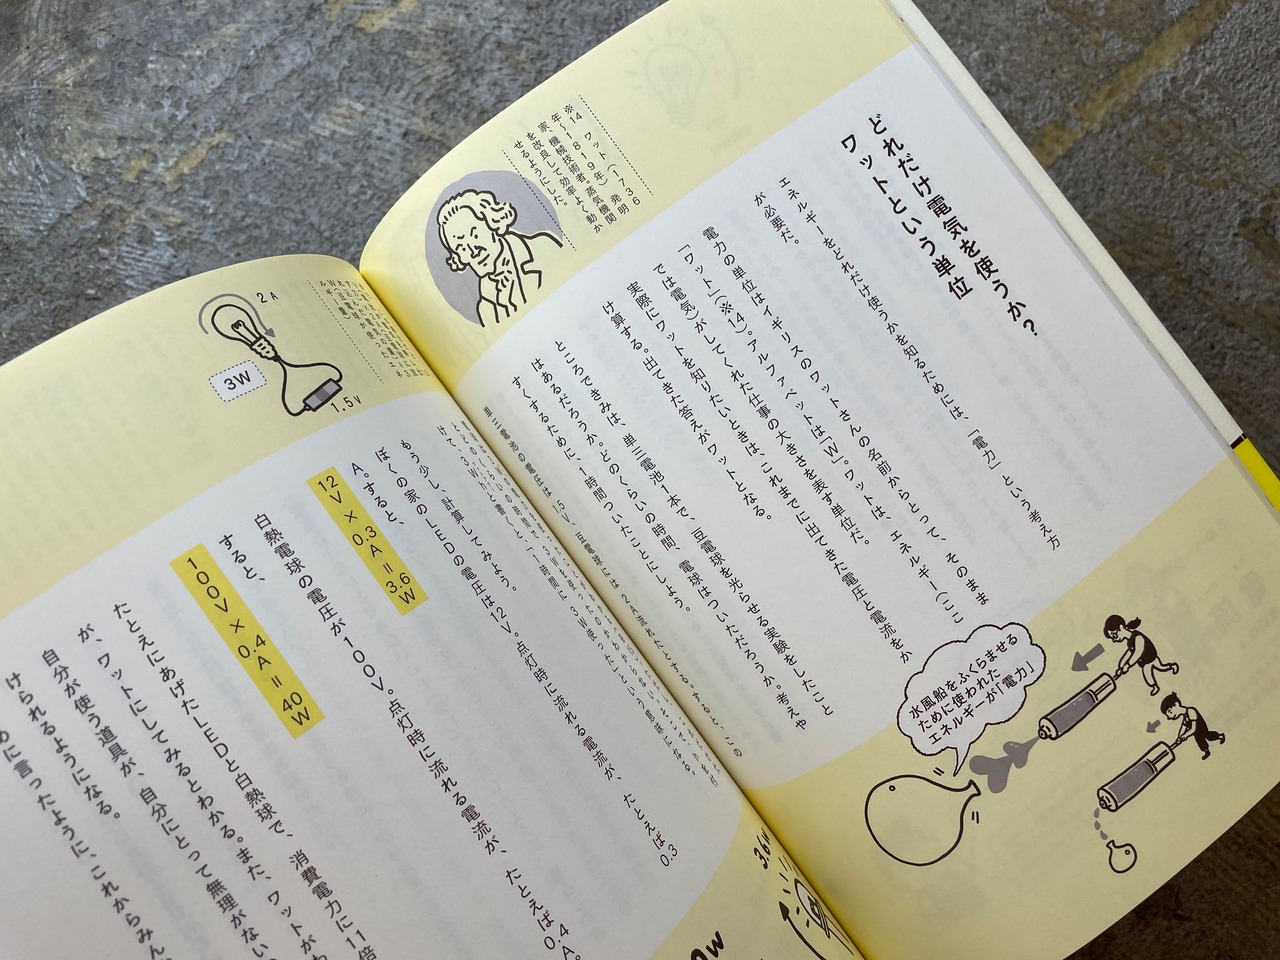 どれだけ電気を使うか?
ワットという単位
エネルギーをどれだけ使うかを知るためには、「電力」という考え方
が必要だ。
電力の単位はイギリスのワットさんの名前からとって、そのまま
「ワット」(※14)。アルファベットは「W」。ワットは、エネルギー(ここ
では電気)がしてくれた仕事の大きさを表す単位だ。
実際にワットを知りたいときは、これまでに出てきた電圧と電流をか
け算する。出てきた答えがワットとなる。
ところできみは、単三電池1本で、豆電球を光らせる実験をしたこと
はあるだろうか。どのくらいの時間、電球はついただろうか。考えや
すくするために、1時間ついたことにしよう。
※14 ワット(1736
年〜1819年) 発明
家、機械技術者。蒸気機関
を改良して効率よく動か
せるようにした。
水風船をふくらませる
ために使われた
エネルギーが「電力」
単三電池の電圧は1.5V、豆電球には2A流れたとする。すると、この
けて、3W
もう少し、計算してみよう。
ぼくの家のLEDの電圧は12V。点灯時に流れる電流が、たとえば0.3
A。すると、
12V×0.3A=3.6W
白熱電球の電圧が100V。点灯時に流れる電流が、たとえば0.4A。
すると、
100V×0.4A=40W
たとえにあげたLEDと白熱球で、消費電力に11倍
が、ワットにしてみるとわかる。また、ワットがわ
自分が使う道具が、自分にとって無理がない
けられるようになる。
めに言ったように、これからみん
2A
3W
1.5V
3.6W